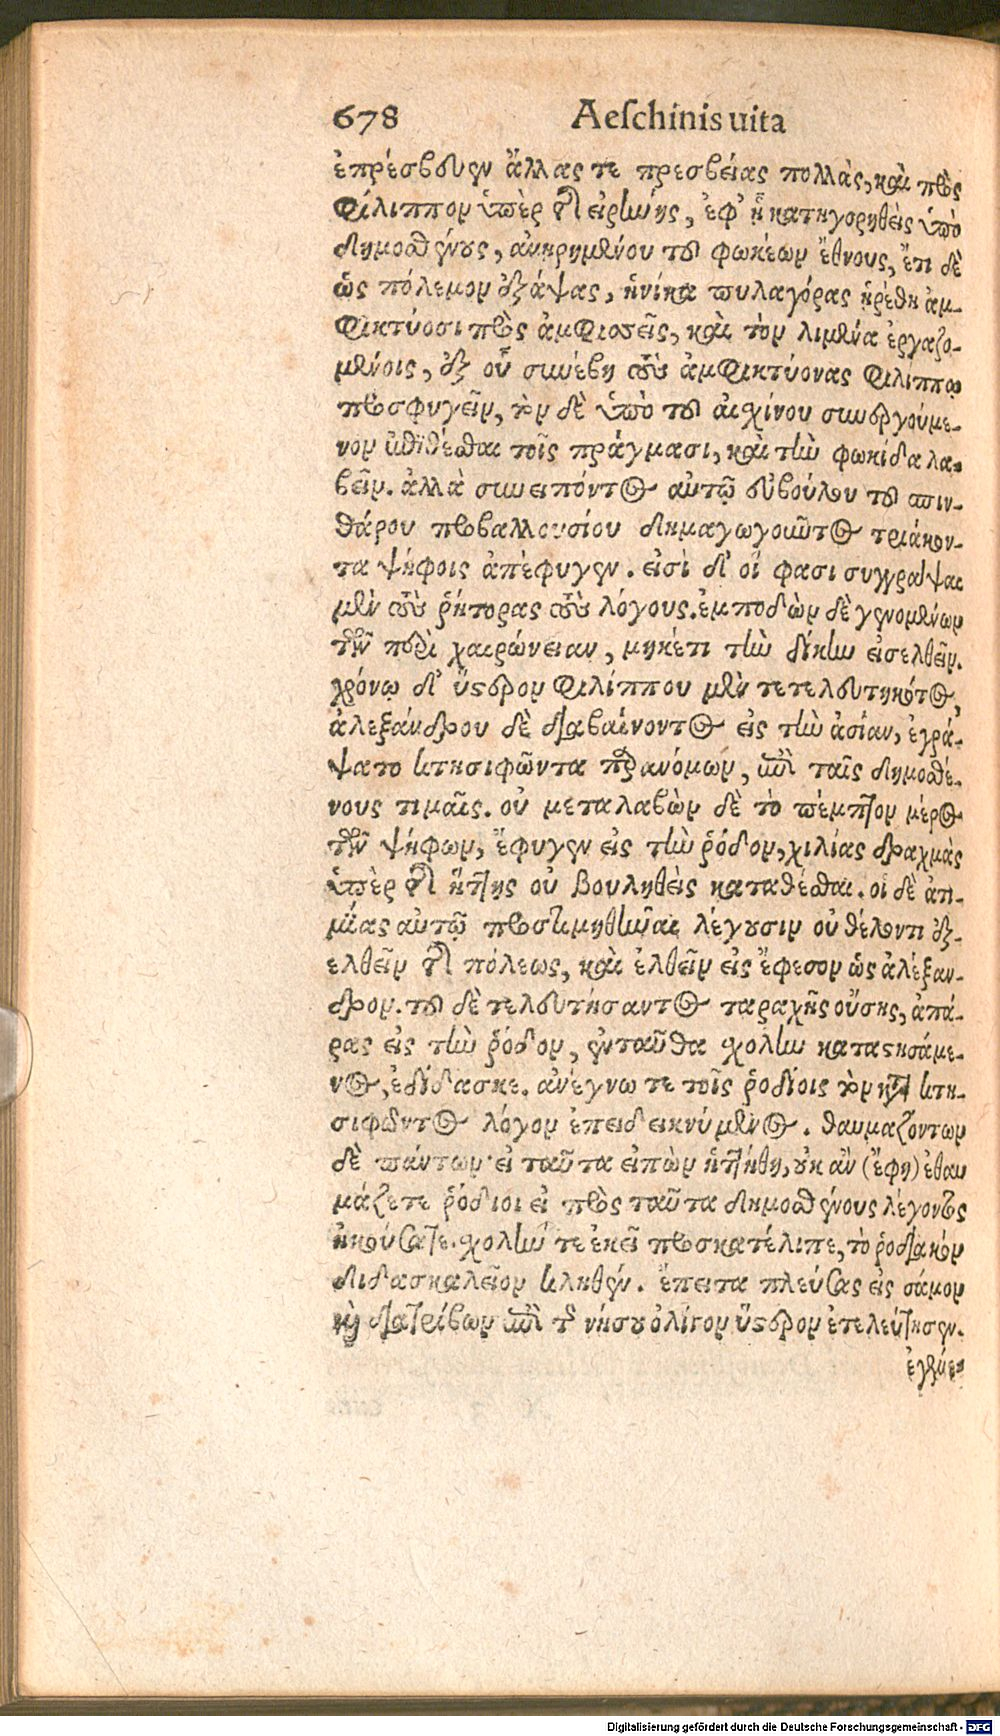 678 Aeſchinis uita
ἐπρέσβευεν ἄλλας τε πρεσβείας πολλὰς, καὶ πρὸς
Φίλιππον ὑπὲρ τῆς εἰρήνης, ἐφ᾽ ᾗ κατηγορηθεὶς ὑπὸ
Δημοσθένους, ἀνῃρημένου τοῦ φωκέων ἔθνους, ἔτι δὲ
ὡς πόλεμον ἐξάψας, ἡνίκα πυλαγόρας ᾑρέθη ἀμ-
Φικτύοσι πρὸς ἀμφισσεῖς, καὶ τὸν λιμένα ἐργαζο-
μένοις, ἐξ οὗ συνέβη τοὺς ἀμφικτύονας Φιλίππῳ
προσφυγεῖν, τὸν δὲ ὑπὸ τοῦ αἰσχίνου συνεργούμε-
νον ἐπιθέσθαι τοῖς πράγμασι, καὶ τὴν φωκίδα λα-
βεῖν. ἀλλὰ συνειπόντος αὐτῷ εὐβούλου τοῦ σπιν-
θάρου προβαλλουσίου δημαγωγοῦντος τριάκον-
τα ψήφοις ἀπέφυγεν. εἰσὶ δ᾽ οἵ φασι συγγράψαι
μὲν τοὺς ῥήτορας τοὺς λόγους. ἐμποδὼν δὲ γενομένων
τῶν περὶ χαιρώνειαν, μηκέτι τὴν δίκην εἰσελθεῖν.
χρόνῳ δ᾽ ὕστερον Φιλίππου μὲν τετελευτηκότος,
ἀλεξάνδρου δὲ διαβαίνοντος εἰς τὴν ἀσίαν, ἐγρά-
ψατο κτησιφῶντα παρανόμων, ἐπὶ ταῖς δημοσθέ-
νους τιμαῖς. οὐ μεταλαβὼν δὲ τὸ πέμπτον μέρος
τῶν ψήφων, ἔφυγεν εἰς τὴν ῥόδον, χιλίας δραχμὰς
ὑπὲρ τῆς ἥττης οὐ βουληθεὶς καταθέσθαι. οἱ δὲ ἀτι-
μίας αὐτῷ προστιμηθῆναι λέγουσιν οὐ θέλοντι ἐξ-
ελθεῖν τῆς πόλεως, καὶ ἐλθεῖν εἰς ἔφεσον ὡς ἀλέξαν-
δρον. τοῦ δὲ τελευτήσαντος ταραχῆς οὔσης, ἀπά-
ρας εἰς τὴν ῥόδον, ἐνταῦθα σχολὴν κατασησάμε-
νος, ἐδίδασκε. ἀνέγνω τε τοῖς ῥοδίοις τὸν κατὰ κτη-
σιφῶντος λόγον ἐπιδεικνύμενος. θαυμαζόντων
δὲ πάντων· εἰ ταῦτα εἰπὼν ἡττήθη, οὐκ ἂν (ἔφη) ἐθαυ
μάζετε ῥόδιοι εἰ πρὸς ταῦτα δημοσθένους λέγοντος
ἠκούσατε. σχολήν τε ἐκεῖ προσκατέλιπε, τὸ ῥοδιακὸν
διδασκαλεῖον κληθέν. ἔπειτα πλεύσας εἰς σάμον
καὶ διατρίβων ἐπὶ τῆς νήσου ὀλίγον ὕστερον ἐτελεύτησεν.
Digitalisierung gefördert durch die Deutsche Forschungsgemeinschaft - DFG